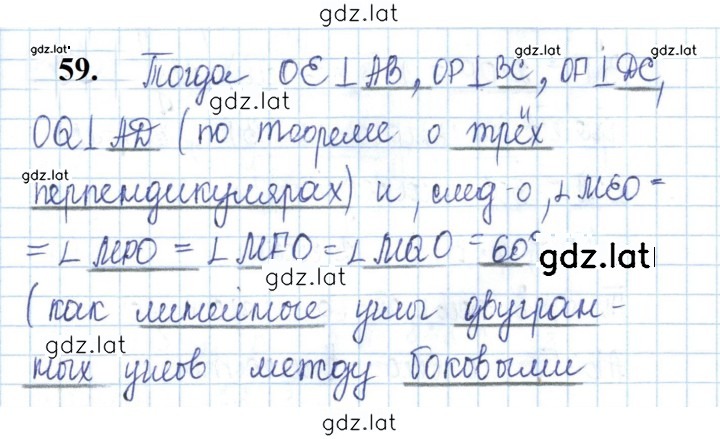 gdz.lat
gdz.lat gdz.lat gdz.lat
59. Тогда OE ⊥ AB, OP ⊥ BC, OF ⊥ DC,
gdz.lat
OQ ⊥ AD (по теореме о трёх
gdz.lat
перпендикулярах) и, след-о, ∠MEO =
= ∠MPO = ∠MFO = ∠MQO = 60°
gdz.lat
gdz.lat
(как линейные углы двугран-
gdz.lat
ных углов между боковыми
gdz.lat